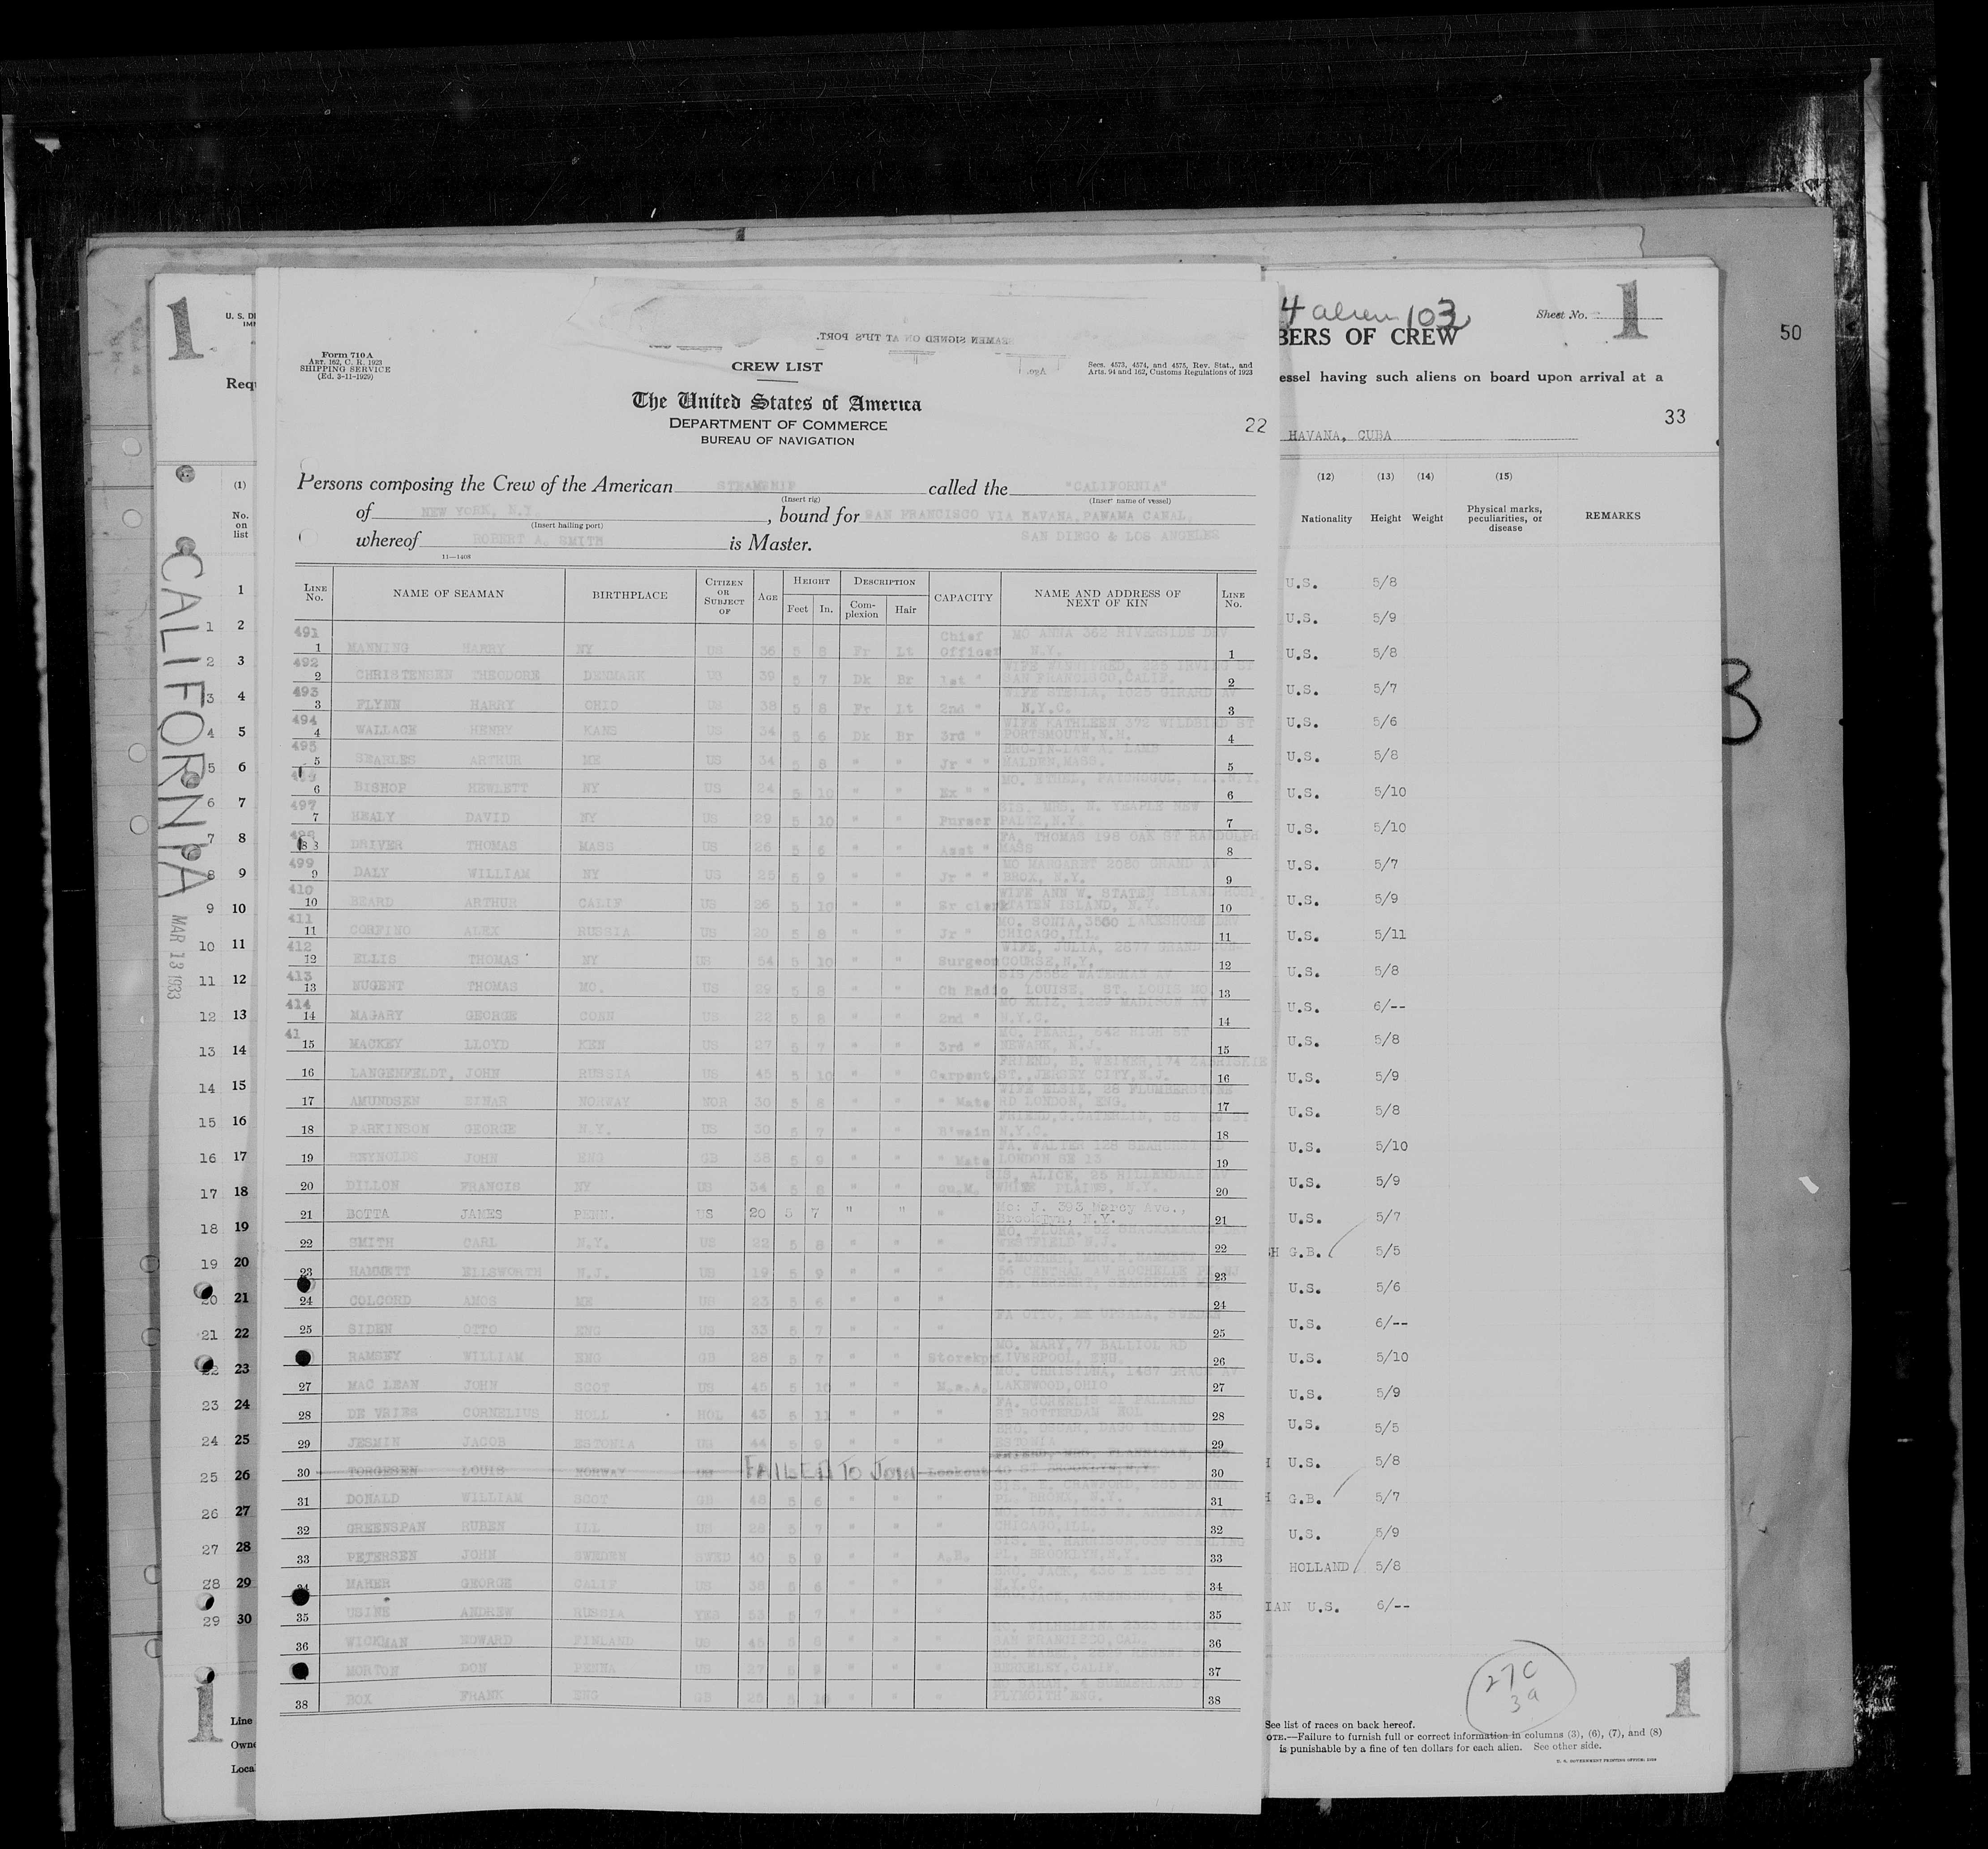 1
U. S. D
IMM
Requ
(1)
No.
on
list
CALIFORNIA
MAR 13 1933
Line
Owne
Loca
1
SEAMEN SIGNED ON AT THIS PORT.
Form 710 A
ART. 162, C. R. 1923
SHIPPING SERVICE
(Ed. 3-11-1929)
CREW LIST
Secs. 4573, 4574, and 4575, Rev. Stat., and
Arts. 94 and 162, Customs Regulations of 1923
The United States of America
DEPARTMENT OF COMMERCE
BUREAU OF NAVIGATION
22
Persons composing the Crew of the American STEAMSHIP called the "CALIFORNIA"
(Insert rig) (Insert name of vessel)
of NEW YORK, N.Y. , bound for SAN FRANCISCO VIA HAVANA, PANAMA CANAL,
(Insert hailing port)
whereof ROBERT A. SMITH is Master. SAN DIEGO & LOS ANGELES
11—1408
LINE No. NAME OF SEAMAN BIRTHPLACE CITIZEN OR SUBJECT OF AGE HEIGHT Feet In. DESCRIPTION Complexion Hair CAPACITY NAME AND ADDRESS OF NEXT OF KIN LINE No.
491 1 MANNING HARRY NY US 36 5 8 Fr Lt Chief Officer MO ANNA 362 RIVERSIDE DRV N.Y. 1
492 2 CHRISTENSEN THEODORE DENMARK US 39 5 7 Dk Br 1st " WIFE WINNIFRED, 225 IRVING ST SAN FRANCISCO, CALIF. 2
493 3 FLYNN HARRY OHIO US 38 5 8 Fr Lt 2nd " WIFE STELLA, 1025 GIRARD AV N.Y.C. 3
494 4 WALLACE HENRY KANS US 34 5 6 Dk Br 3rd " WIFE KATHLEEN 372 WILDBIRD ST PORTSMOUTH, N.H. 4
495 5 SEARLES ARTHUR ME US 34 5 8 " " Jr " " BRO-IN-LAW A. LAMB MALDEN, MASS. 5
6 BISHOP HEWLETT NY US 24 5 10 " " Ex " " MO. ETHEL, 6
497 7 HEALY DAVID NY US 29 5 10 " " Purser SIS. MRS. W. YEAPLE NEW PALTZ, N.Y. 7
498 8 DRIVER THOMAS MASS US 26 5 6 " " Asst " FA. THOMAS 198 OAK ST RANDOLPH MASS 8
499 9 DALY WILLIAM NY US 25 5 9 " " Jr " " MO MARGARET 2685 GRAND AV BROX, N.Y. 9
410 10 BEARD ARTHUR CALIF US 26 5 10 " " Sr clerk WIFE ANN W. STATEN ISLAND HOSP. STATEN ISLAND, N.Y. 10
411 11 CORFINO ALEX RUSSIA US 20 5 8 " " Jr " MO. SONIA, 3550 LAKESHORE DRV CHICAGO, ILL. 11
412 12 ELLIS THOMAS NY US 54 5 10 " " Surgeon WIFE, JULIA, 2877 GRAND CON- COURSE, N.Y. 12
413 13 NUGENT THOMAS MO. US 29 5 8 " " Ch Radio SIS 5882 WATERMAN AV LOUISE, ST. LOUIS MO 13
414 14 MAGARY GEORGE CONN US 22 5 8 " " 2nd " MO ELIZ, 1229 MADISON AV N.Y.C. 14
41 15 MACKEY LLOYD KEN US 27 5 7 " " 3rd " MO. PEARL, 642 HIGH ST NEWARK, N.J. 15
16 LANGENFELDT, JOHN RUSSIA US 45 5 10 " " Carpent. FRIEND, B. WEIKER, 174 ZABRISKIE ST., JERSEY CITY, N.J. 16
17 AMUNDSEN EINAR NORWAY NOR 30 5 8 " " " Mate WIFE ELSIE, 28 RD LONDON, ENG. 17
18 PARKINSON GEORGE N.Y. US 30 5 7 " " B'swain FRIEND, N.Y.C. 18
19 REYNOLDS JOHN ENG GB 38 5 9 " " " Mate FA. WALTER 128 LONDON SE 13 19
20 DILLON FRANCIS NY US 34 5 8 " " Qu.M. SIS. ALICE, 25 HILLENDALE AV WHITE PLAINS, N.Y. 20
21 BOTTA JAMES PENN. US 20 5 7 " " " Mo: J. 393 Marcy Ave., Brooklyn, N.Y. 21
22 SMITH CARL N.Y. US 22 5 8 " " " MO. FLORA, WESTFIELD N.J. 22
23 HAMMETT ELLSWORTH N.J. US 19 5 9 " " " G.MOTHER, MRS. HAMMETT 56 CENTRAL AV ROCHELLE PK NJ 23
24 COLCORD AMOS ME US 23 5 6 " " " 24
25 SIDEN OTTO ENG US 33 5 7 " " " FA OTTO, UPSALA, SWEDEN 25
RAMSEY WILLIAM ENG GB 28 5 7 " " Storekpr MO. MARY, 77 BALLIOL RD LIVERPOOL, ENG. 26
27 MAC LEAN JOHN SCOT US 45 5 10 " " MO. CHRISTINA, 1467 GRACE AV LAKEWOOD, OHIO 27
28 DE VRIES CORNELIUS HOLL HOL 43 5 11 " " " FA. CORNELIS 21 ST ROTTERDAM HOL 28
29 JESMIN JACOB ESTONIA US 44 5 9 " " " BRO. PETER, DAGO ISLAND ESTONIA 29
30 TORGESEN LOUIS NORWAY US FAILED TO JOIN Lookout FRIEND, MRS. ST BROOKLYN, N.Y. 30
31 DONALD WILLIAM SCOT GB 48 5 6 " " " SIS. E. CRAWFORD, PL. BRONX, N.Y. 31
32 GREENSPAN RUBEN ILL US 28 5 7 " " " MO. IDA, CHICAGO, ILL. 32
33 PETERSEN JOHN SWEDEN SWED 40 5 9 " " A.B. SIS. E. HARRISON, 639 STERLING PL, BROOKLYN, N.Y. 33
34 MAHER GEORGE CALIF US 38 5 6 " " " BRO. JACK, 436 E 136 ST N.Y.C. 34
35 USINE ANDREW RUSSIA YES 53 5 7 " " " 35
36 WICKMAN EDWARD FINLAND US 45 5 8 " " " MO. WILHELMINA SAN FRANCISCO, CAL. 36
MORTON DON PENNA US 27 5 9 " " " MO. MABEL, BERKELEY, CALIF. 37
38 BOX FRANK ENG GB 25 5 10 " " " MO SARAH, 4 SUMMERLAND PL PLYMOUTH ENG. 38
4 alien 103
Sheet No. 1
BERS OF CREW
50
essel having such aliens on board upon arrival at a
33
HAVANA, CUBA
(12) (13) (14) (15)
Nationality Height Weight Physical marks, peculiarities, or disease REMARKS
U.S. 5/8
U.S. 5/9
U.S. 5/8
U.S. 5/7
U.S. 5/6
U.S. 5/8
U.S. 5/10
U.S. 5/10
U.S. 5/7
U.S. 5/9
U.S. 5/11
U.S. 5/8
U.S. 6/--
U.S. 5/8
U.S. 5/9
U.S. 5/8
U.S. 5/10
U.S. 5/9
U.S. 5/7
H G.B. 5/5
U.S. 5/6
U.S. 6/--
U.S. 5/10
U.S. 5/9
U.S. 5/5
U.S. 5/8
G.B. 5/7
U.S. 5/9
HOLLAND 5/8
IAN U.S. 6/--
3
27 C
3 a
1
See list of races on back hereof.
OTE.—Failure to furnish full or correct information in columns (3), (6), (7), and (8)
is punishable by a fine of ten dollars for each alien. See other side.
U. S. GOVERNMENT PRINTING OFFICE: 1929